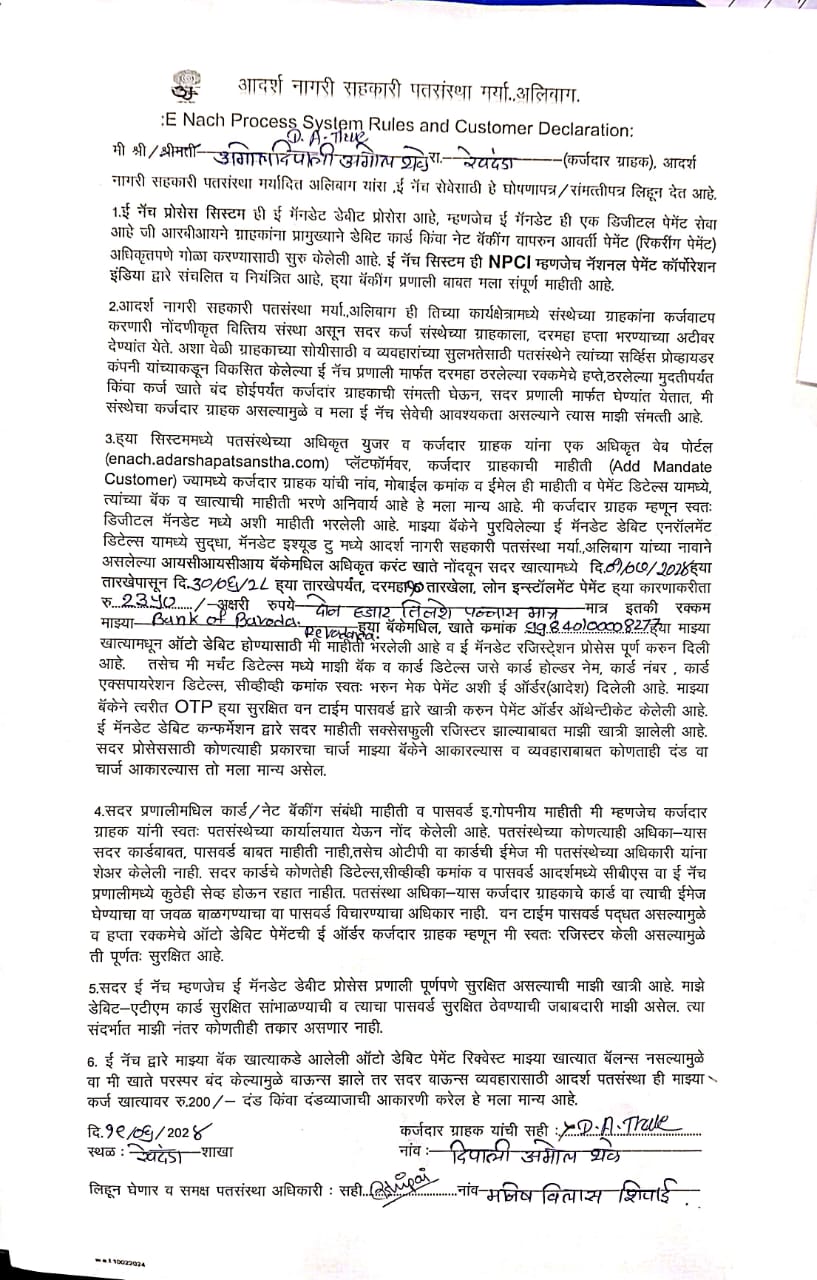 आदर्श नागरी सहकारी पतसंस्था मर्या.,अलिबाग.
:E Nach Process System Rules and Customer Declaration:
D. A. Thale
मी श्री/श्रीमती दिपाली अमोल थळे रा. रेवदंडा (कर्जदार ग्राहक), आदर्श
नागरी सहकारी पतसंस्था मर्यादित अलिबाग यांस ,ई नॅच सेवेसाठी हे घोषणापत्र/संमत्तीपत्र लिहून देत आहे.
1.ई नॅच प्रोसेस सिस्टम ही ई मॅनडेट डेबीट प्रोसेस आहे, म्हणजेच ई मॅनडेट ही एक डिजिटल पेमेंट सेवा
आहे जी आरबीआयने ग्राहकांना प्रामुख्याने डेबिट कार्ड किंवा नेट बॅकींग वापरुन आवर्ती पेमेंट (रिकरींग पेमेंट)
अधिकृतपणे गोळा करण्यासाठी सुरु केलेली आहे. ई नॅच सिस्टम ही NPCI म्हणजेच नॅशनल पेमेंट कॉर्पोरेशन
इंडिया द्वारे संचलित व नियंत्रित आहे, ह्या बॅकींग प्रणाली बाबत मला संपूर्ण माहीती आहे.
2.आदर्श नागरी सहकारी पतसंस्था मर्या.,अलिबाग ही तिच्या कार्यक्षेत्रामध्ये संस्थेच्या ग्राहकांना कर्जवाटप
करणारी नोंदणीकृत वित्तिय संस्था असून सदर कर्ज संस्थेच्या ग्राहकाला, दरमहा हप्ता भरण्याच्या अटीवर
देण्यांत येते. अशा वेळी ग्राहकाच्या सोयीसाठी व व्यवहारांच्या सुलभतेसाठी पतसंस्थेने त्यांच्या सर्व्हिस प्रोव्हायडर
कंपनी यांच्याकडून विकसित केलेल्या ई नॅच प्रणाली मार्फत दरमहा ठरलेल्या रक्कमेचे हप्ते,ठरलेल्या मुदतीपर्यंत
किंवा कर्ज खाते बंद होईपर्यंत कर्जदार ग्राहकाची संमत्ती घेऊन, सदर प्रणाली मार्फत घेण्यांत येतात, मी
संस्थेचा कर्जदार ग्राहक असल्यामुळे व मला ई नॅच सेवेची आवश्यकता असल्याने त्यास माझी संमत्ती आहे.
3.ह्या सिस्टममध्ये पतसंस्थेच्या अधिकृत युजर व कर्जदार ग्राहक यांना एक अधिकृत वेब पोर्टल
(enach.adarshapatsanstha.com) प्लॅटफॉर्मवर, कर्जदार ग्राहकाची माहीती (Add Mandate
Customer) ज्यामध्ये कर्जदार ग्राहक यांची नांव, मोबाईल कमांक व ईमेल ही माहीती व पेमेंट डिटेल्स यामध्ये,
त्यांच्या बॅक व खात्याची माहीती भरणे अनिवार्य आहे हे मला मान्य आहे. मी कर्जदार ग्राहक म्हणून स्वतः
डिजीटल मॅनडेट मध्ये अशी माहीती भरलेली आहे. माझ्या बॅकेने पुरविलेल्या ई मॅनडेट डेबिट एनरॉलमेंट
डिटेल्स यामध्ये सुद्धा, मॅनडेट इश्यूड टु मध्ये आदर्श नागरी सहकारी पतसंस्था मर्या.,अलिबाग यांच्या नावाने
असलेल्या आयसीआयसीआय बॅकेमधिल अधिकृत करंट खाते नोंदवून सदर खात्यामध्ये दि.०१/०७/२०२४ ह्या
तारखेपासून दि.३०/०६/२८ ह्या तारखेपर्यंत, दरमहा १० तारखेला, लोन इन्स्टॉलमेंट पेमेंट ह्या कारणाकरीता
रु. २३५० /-अक्षरी रुपये दोन हजार तिनशे पन्नास मात्र मात्र इतकी रक्कम
माझ्या Bank of Baroda. Revdanda. ह्या बॅकेमधिल, खाते कमांक 99840100008277 ह्या माझ्या
खात्यामधून ऑटो डेबिट होण्यासाठी मी माहीती भरलेली आहे व ई मॅनडेट रजिस्ट्रेशन प्रोसेस पूर्ण करुन दिली
आहे. तसेच मी मर्चंट डिटेल्स मध्ये माझी बॅक व कार्ड डिटेल्स जसे कार्ड होल्डर नेम, कार्ड नंबर , कार्ड
एक्सपायरेशन डिटेल्स, सीव्हीव्ही कमांक स्वतः भरुन मेक पेमेंट अशी ई ऑर्डर(आदेश) दिलेली आहे. माझ्या
बॅकेने त्वरीत OTP ह्या सुरक्षित वन टाईम पासवर्ड द्वारे खात्री करुन पेमेंट ऑर्डर ऑथेन्टीकेट केलेली आहे.
ई मॅनडेट डेबिट कन्फर्मेशन द्वारे सदर माहीती सक्सेसफुली रजिस्टर झाल्याबाबत माझी खात्री झालेली आहे.
सदर प्रोसेससाठी कोणत्याही प्रकारचा चार्ज माझ्या बॅकेने आकारल्यास व व्यवहाराबाबत कोणताही दंड वा
चार्ज आकारल्यास तो मला मान्य असेल.
4.सदर प्रणालीमधिल कार्ड/नेट बॅकींग संबंधी माहीती व पासवर्ड इ.गोपनीय माहीती मी म्हणजेच कर्जदार
ग्राहक यांनी स्वतः पतसंस्थेच्या कार्यालयात येऊन नोंद केलेली आहे. पतसंस्थेच्या कोणत्याही अधिका–यास
सदर कार्डबाबत, पासवर्ड बाबत माहीती नाही,तसेच ओटीपी वा कार्डची ईमेज मी पतसंस्थेच्या अधिकारी यांना
शेअर केलेली नाही. सदर कार्डचे कोणतेही डिटेल्स,सीव्हीव्ही कमांक व पासवर्ड आदर्शमध्ये सीबीएस वा ई नॅच
प्रणालीमध्ये कुठेही सेव्ह होऊन रहात नाहीत. पतसंस्था अधिका–यास कर्जदार ग्राहकाचे कार्ड वा त्याची ईमेज
घेण्याचा वा जवळ बाळगण्याचा वा पासवर्ड विचारण्याचा अधिकार नाही. वन टाईम पासवर्ड पद्धत असल्यामुळे
व हप्ता रक्कमेचे ऑटो डेबिट पेमेंटची ई ऑर्डर कर्जदार ग्राहक म्हणून मी स्वतः रजिस्टर केली असल्यामुळे
ती पूर्णतः सुरक्षित आहे.
5.सदर ई नॅच म्हणजेच ई मॅनडेट डेबीट प्रोसेस प्रणाली पूर्णपणे सुरक्षित असल्याची माझी खात्री आहे. माझे
डेबिट–एटीएम कार्ड सुरक्षित सांभाळण्याची व त्याचा पासवर्ड सुरक्षित ठेवण्याची जबाबदारी माझी असेल. त्या
संदर्भात माझी नंतर कोणतीही तकार असणार नाही.
6. ई नॅच द्वारे माझ्या बॅक खात्याकडे आलेली ऑटो डेबिट पेमेंट रिक्वेस्ट माझ्या खात्यात बॅलन्स नसल्यामुळे
वा मी खाते परस्पर बंद केल्यामुळे बाऊन्स झाले तर सदर बाऊन्स व्यवहारासाठी आदर्श पतसंस्था ही माझ्या
कर्ज खात्यावर रु.200/– दंड किंवा दंडव्याजाची आकारणी करेल हे मला मान्य आहे.
दि.१९/०६/२०२४ कर्जदार ग्राहक यांची सही : D. A. Thale
स्थळ : रेवदंडा –शाखा नांव : दिपाली अमोल थळे
लिहून घेणार व समक्ष पतसंस्था अधिकारी : सही नांव मनिष विलास शिपाई.